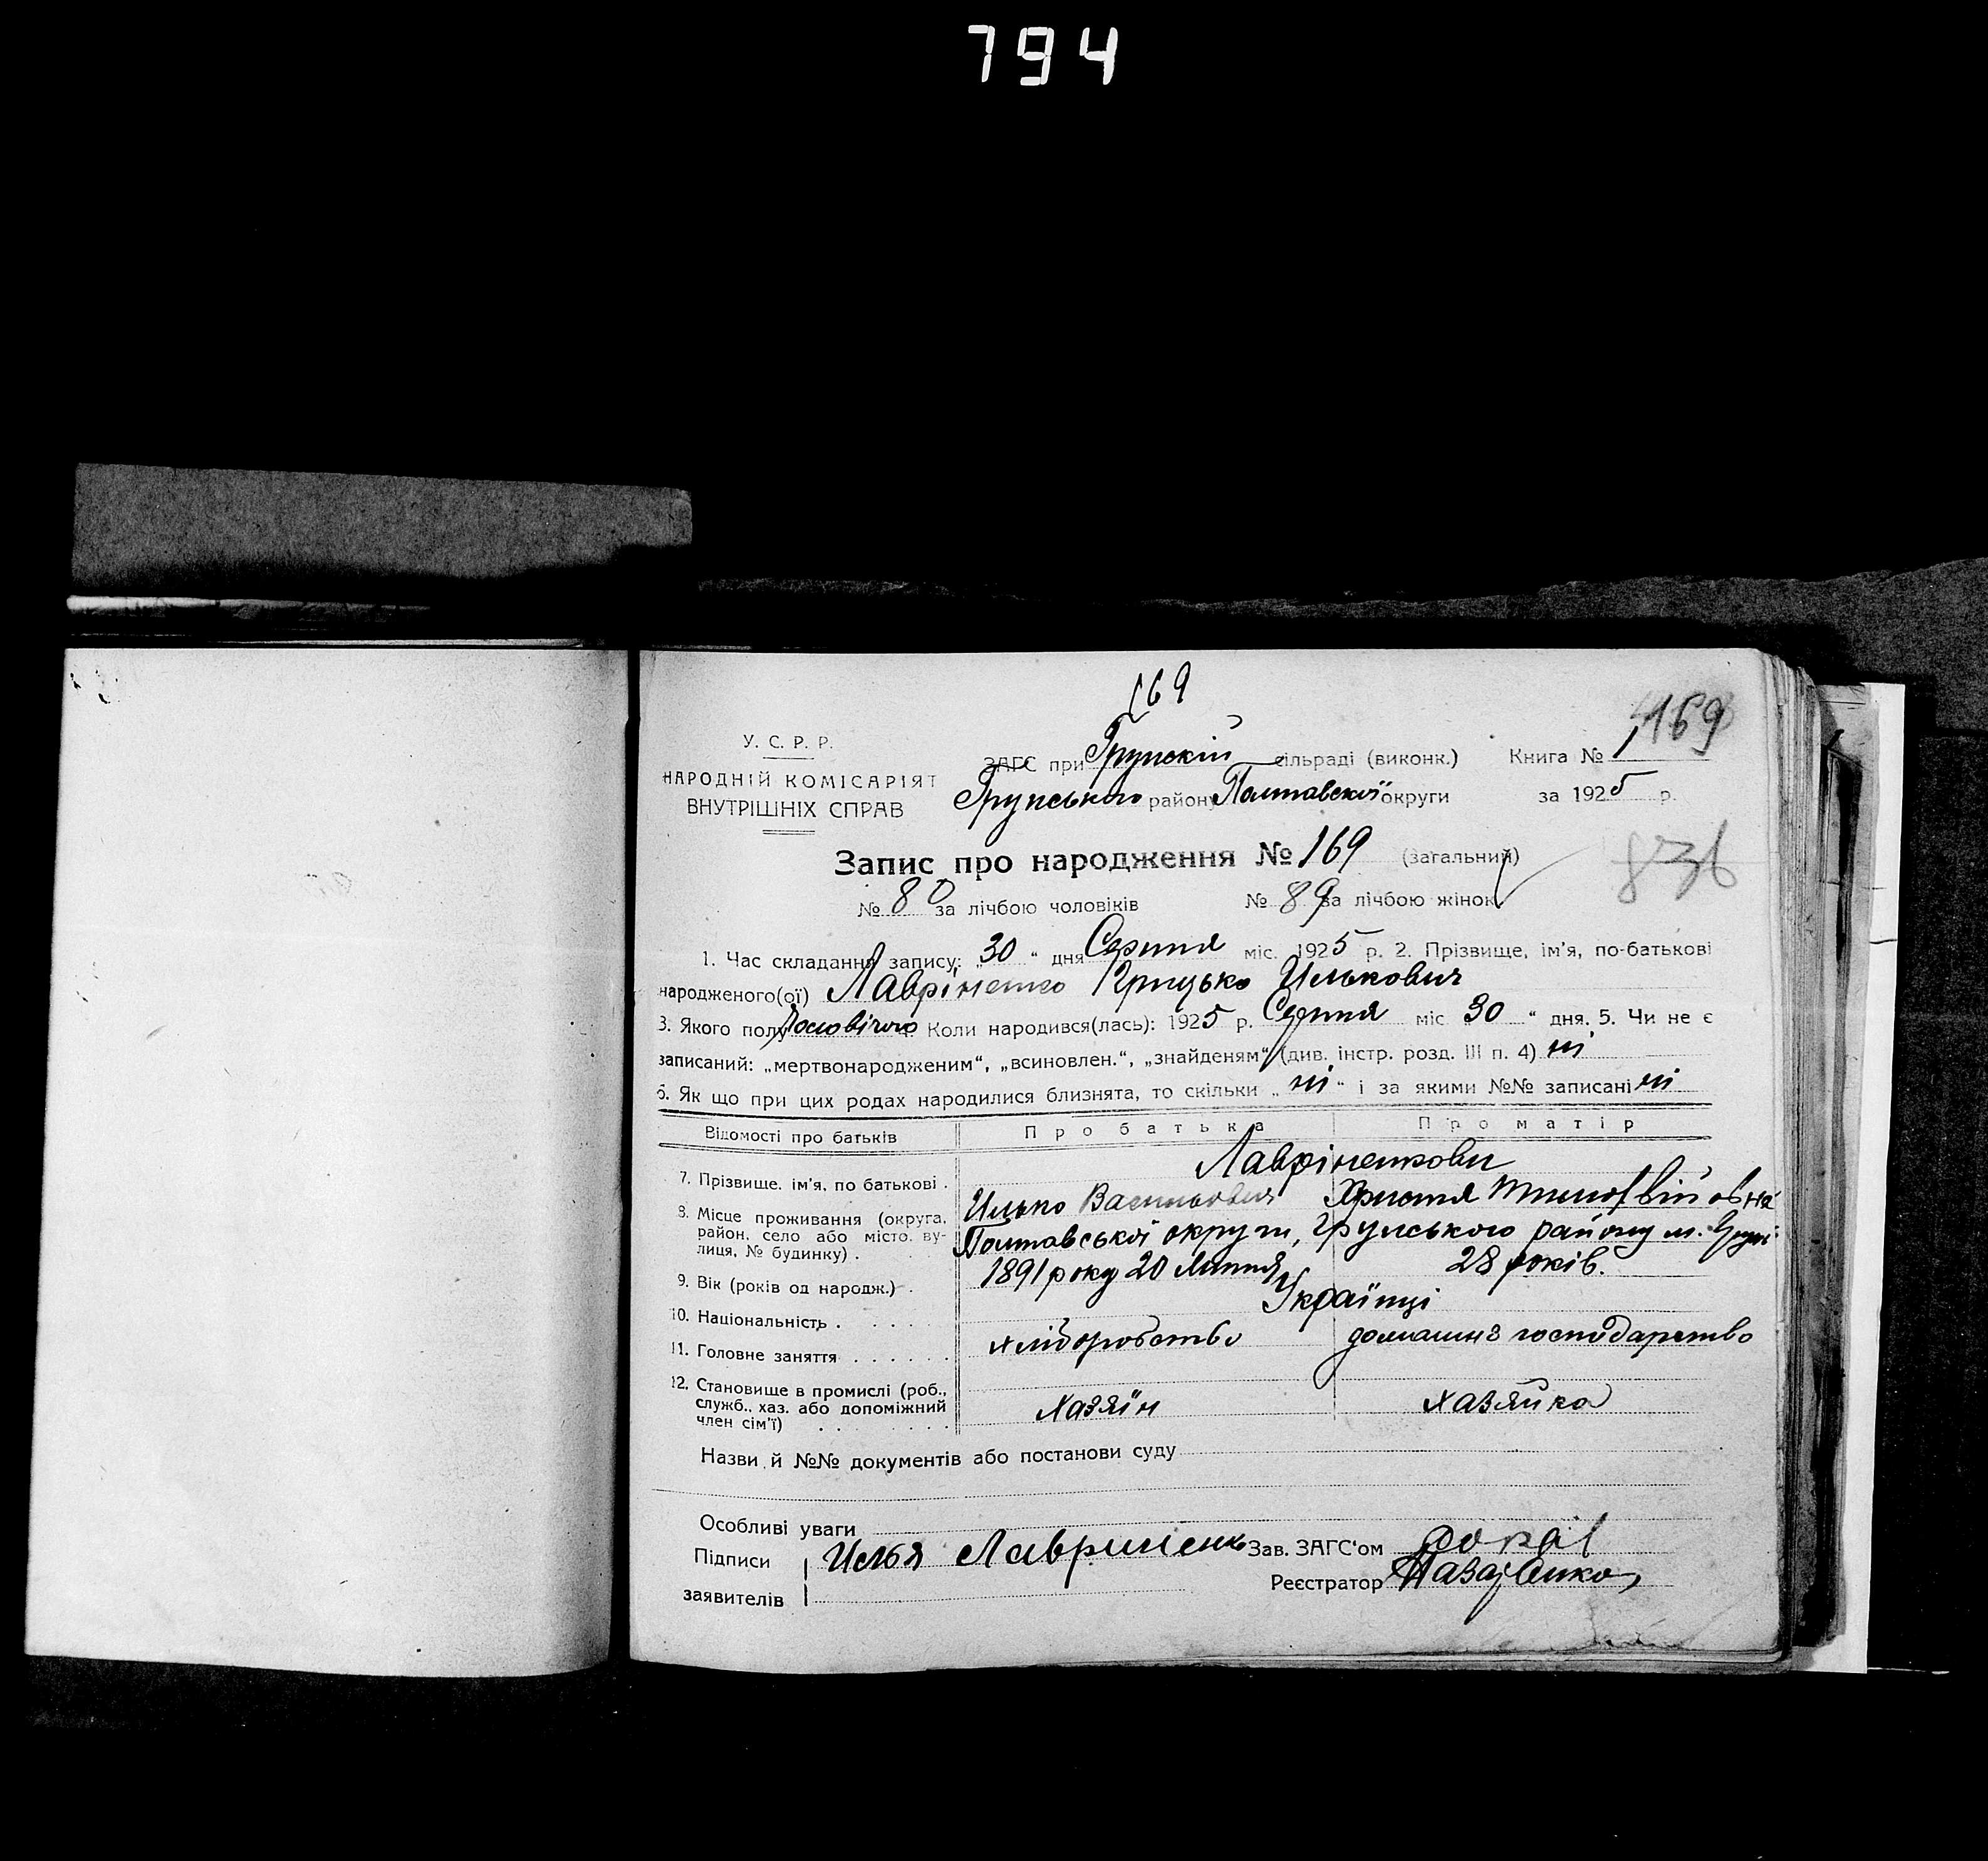 794
169
169
У. С. Р. Р.
НАРОДНІЙ КОМІСАРІЯТ
ВНУТРІШНІХ СПРАВ
ЗАГС при Грунскій сільраді (виконк.) Книга № 1
Грунського району Полтавської округи за 1925 р.
Запис про народження № 169 (загальний)
836
№ 80 за лічбою чоловіків № 89 за лічбою жінок
1. Час складання запису: „30“ дня Серпня міс. 1925 р. 2. Прізвище, ім'я, по-батькові
народженого(ої) Лавріненко Грицько Илькович
3. Якого полу Чоловічого Коли народився(лась): 1925 р. Серпня міс „30“ дня. 5. Чи не є
записаний: „мертвонародженим“, „всиновлен.“, „знайденям“ (див. інстр. розд. III п. 4) ні
6. Як що при цих родах народилися близнята, то скільки „ні“ і за якими №№ записані ні
Відомості про батьків Про батька Про матір
Лавріненкови
7. Прізвище, ім'я, по батькові . Илько Васильович Христя
8. Місце проживання (округа, район, село або місто, вулиця, № будинку) . Полтавської округи, Грунського району м. Груні
9. Вік (років од народж.) . 1891 року 20 Липня 28 років.
10. Національність . . . . . Українці
11. Головне заняття . . . . . . хліборобство домашнэ господарство
12. Становище в промислі (роб., служб., хаз. або допоміжний член сім'ї) . . . . . . . хазяїн хазяйка
Назви й №№ документів або постанови суду
Особливі уваги
Підписи заявителів Илья Лавриненк Зав. ЗАГС'ом
Реєстратор